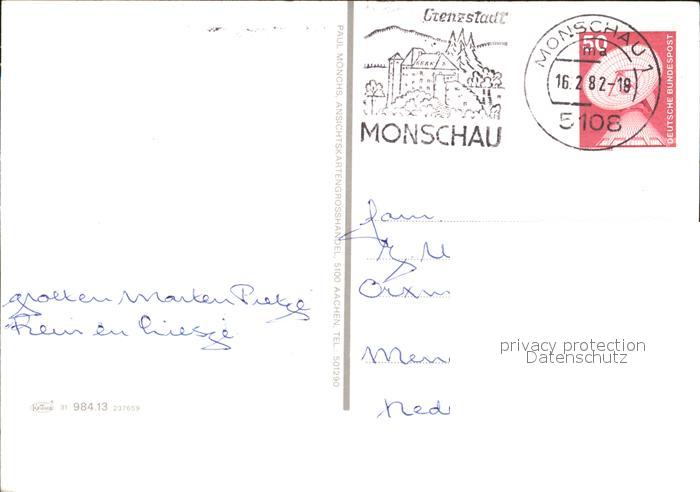 Grenzstadt
MONSCHAU
MONSCHAU 1
ma
16.2.82-18
5108
50
DEUTSCHE BUNDESPOST
PAUL MONCHS, ANSICHTSKARTENGROSSHANDEL, 5100 AACHEN, TEL. 501290
fam
Men
Ned
groeten Marten Pietje
Trein en Liesje
privacy protection
Datenschutz
Krüger 31 984.13 237659